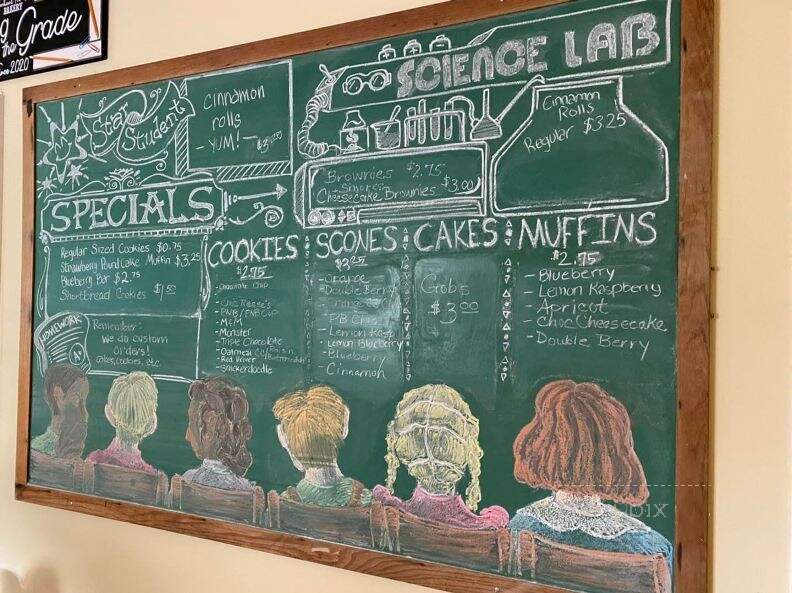 BAKERY
the Grade
Since 2020
Star Student
Cinnamon
rolls
- YUM!
SCIENCE LAB
Cinnamon
Rolls
Regular $3.25
Brownies $2.75
Smores
Cheesecake Brownies $3.00
SPECIALS
Regular Sized Cookies $0.75
Strawberry Pound Cake Muffin $3.25
Blueberry Bar $2.75
Shortbread Cookies $1.50
HOMEWORK
A+
Remember:
We do custom
orders!
Cakes, cookies, etc
COOKIES
$2.75
- Chocolate Chip
- Choc Reese's
- PNB/PNB Cup
- M&M
- Monster
- Triple Chocolate
- Oatmeal
- Red Velvet
- Snickerdoodle
SCONES
$3.25
- Orange
- Double Berry
- Orange
- PB Chip
- Lemon Rasp
- Lemon Blueberry
- Blueberry
- Cinnamon
CAKES
Gobs
$3.00
MUFFINS
$2.75
- Blueberry
- Lemon Raspberry
- Apricot
- Choc Cheesecake
- Double Berry